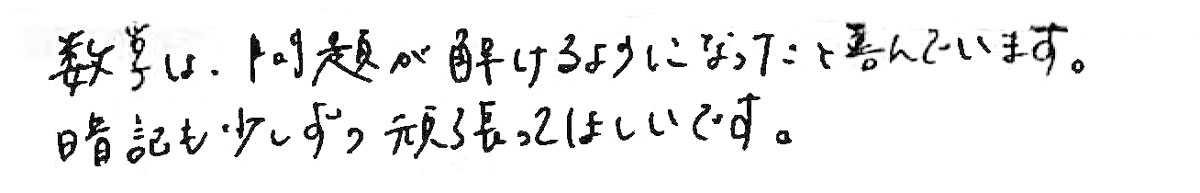 数学は、問題が解けるようになったと喜んでいます。
暗記も少しずつ頑張ってほしいです。